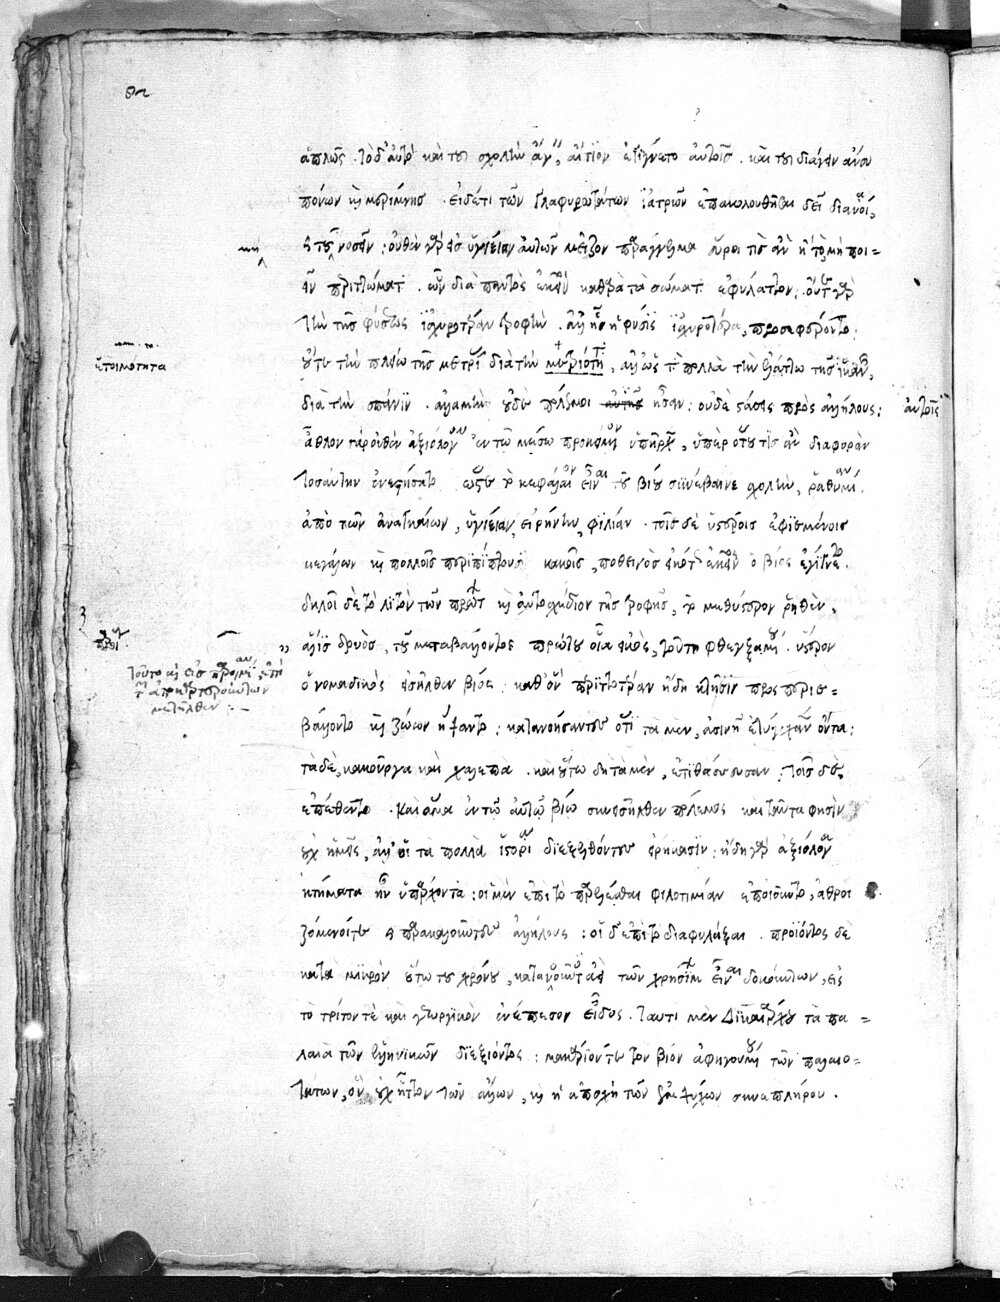 ἁπλῶς . τὸ δ' αὐτὸ καὶ τοῦ σχολὴν ἄγειν, αἴτιον ἐγίγνετο αὐτοῖς . καὶ τοῦ διάγειν ἄνευ
πόνων καὶ μερίμνης . εἰ δέ τι τῶν γλαφυρωτάτων ἰατρῶν ἐπακολουθῆσαι δεῖ διανοίᾳ,
μὴ
καὶ τοῦ νοσεῖν : οὐθὲν γὰρ εἰς ὑγίειαν αὐτῶν μεῖζον παράγγελμα εὕροι τις ἂν ἢ τὸ μὴ ποι=
εῖν περιττώματα . ὧν διὰ παντὸς ἐκεῖνοι καθαρὰ τὰ σώματα ἐφύλαττον . οὔτε γὰρ
τὴν τῆς φύσεως ἰσχυροτέραν τροφὴν . ἀλλ' ἧς ἡ φύσις ἰσχυροτέρα, προσεφέροντο .
ἑτοιμότητα
οὔτε τὴν πλείω τῆς μετρίας διὰ τὴν μετριότητα, ἀλλ' ὡς τὰ πολλὰ τὴν ἐλάττω τῆς ἱκανῆς,
διὰ τὴν σπάνιν . ἀλλὰ μὴν οὐδὲ πόλεμοι αὐτῆς ἦσαν : οὐδὲ στάσεις πρὸς ἀλλήλους : αὐτοῖς
ἆθλον γὰρ οὐθὲν ἀξιόλογον ἐν τῷ μέσῳ προκείμενον ὑπῆρχε, ὑπὲρ ὅτου τις ἂν διαφορὰν
τοσαύτην ἐνεστήσατο ὥστε τὸ κεφάλαιον εἶναι τοῦ βίου συνέβαινε σχολὴν, ῥαθυμίαν
ἀπὸ τῶν ἀναγκαίων, ὑγίειαν, εἰρήνην, φιλίαν . τοῖς δὲ ὑστέροις ἐφιεμένοις
μεγάλων καὶ πολλοῖς περιπίπτουσι κακοῖς, ποθεινὸς εἰκότως ἐκεῖνος ὁ βίος ἐγίγνετο .
δηλοῖ δὲ τὸ λιτὸν τῶν πρώτων καὶ αὐτοσχέδιον τῆς τροφῆς, τὸ μεθύστερον ῥηθὲν,
ἅλις δρυὸς, τοῦ μεταβάλλοντος πρώτου οἷα εἰκὸς, τοῦτο φθεγξαμένου . ὕστερον
τοῦτο καὶ εἰς
μετῆλθεν
ὁ νομαδικὸς εἰσῆλθεν βίος . καθ' ὃν περιττοτέραν ἤδη κτῆσιν προσπεριε=
βάλλοντο καὶ ζώων ἥψαντο : κατανοήσαντες ὅτι τὰ μὲν, ἀσινῆ ἐτύγχανεν ὄντα :
τὰ δὲ, κακοῦργα καὶ χαλεπὰ . καὶ οὕτω δὴ τὰ μὲν, ἐτιθάσσευσαν : τοῖς δὲ,
ἐπέθεντο . καὶ ἅμα ἐν τῷ αὐτῷ βίῳ συνεισῆλθεν πόλεμος καὶ ταῦτα φησὶν
οὐχ ἡμεῖς, ἀλλ' οἱ τὰ πολλὰ ἱστορίᾳ διεξελθόντες εἰρήκασιν : ἤδη γὰρ ἀξιόλογα
κτήματα ἦν ὑπάρχοντα : οἱ μὲν ἐπὶ τὸ παρελέσθαι φιλοτιμίαν ἐποιοῦντο, ἀθροι
ζόμενοί τε καὶ παρακαλοῦντες ἀλλήλους : οἱ δ' ἐπὶ τὸ διαφυλάξαι . προϊόντος δὲ
κατὰ μικρὸν οὕτω τοῦ χρόνου, κατανοοῦντες ἀεὶ τῶν χρησίμων εἶναι δοκούντων, εἰς
τὸ τρίτον τε καὶ γεωργικὸν ἐνέπεσον εἶδος . ταυτὶ μὲν Δικαιάρχου τὰ πα=
λαιὰ τῶν ἑλληνικῶν διεξιόντος : μακάριόν τε τὸν βίον ἀφηγουμένου τῶν παλαιο=
τάτων, ὃν οὐχ ἧττον τῶν ἄλλων, καὶ ἡ ἀποχὴ τῶν ἐμψύχων συνεπλήρου .